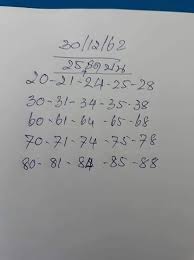 30/12/62
25 ชุดบน
20-21-24-25-28
30-31-34-35-38
60-61-64-65-68
70-71-74-75-78
80-81-84-85-88